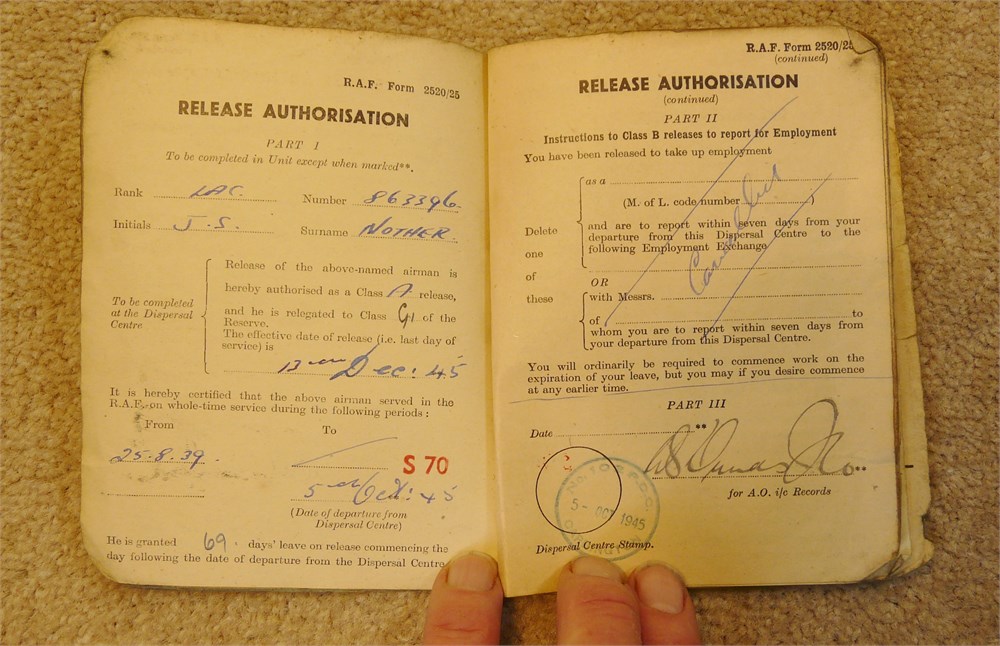 R.A.F. Form 2520/25
RELEASE AUTHORISATION
PART I
To be completed in Unit except when marked**.
Rank LAC. Number 863396.
Initials J.S. Surname NOTHER.
To be completed at the Dispersal Centre
Release of the above-named airman is
hereby authorised as a Class A release,
and he is relegated to Class G1 of the
Reserve.
The effective date of release (i.e. last day of
service) is
13th Dec: 45
It is hereby certified that the above airman served in the
R.A.F. on whole-time service during the following periods :
From To
25.8.39.
S 70
5th Oct: 45
(Date of departure from
Dispersal Centre)
He is granted 69 days' leave on release commencing the
day following the date of departure from the Dispersal Centre
R.A.F. Form 2520/25
(continued)
RELEASE AUTHORISATION
(continued)
PART II
Instructions to Class B releases to report for Employment
You have been released to take up employment
Delete one of these
as a
(M. of L. code number )
and are to report within seven days from your
departure from this Dispersal Centre to the
following Employment Exchange
Cancelled
OR
with Messrs.
of to
whom you are to report within seven days from
your departure from this Dispersal Centre.
You will ordinarily be required to commence work on the
expiration of your leave, but you may if you desire commence
at any earlier time.
PART III
Date **
for A.O. i/c Records
5- OCT 1945
Dispersal Centre Stamp.